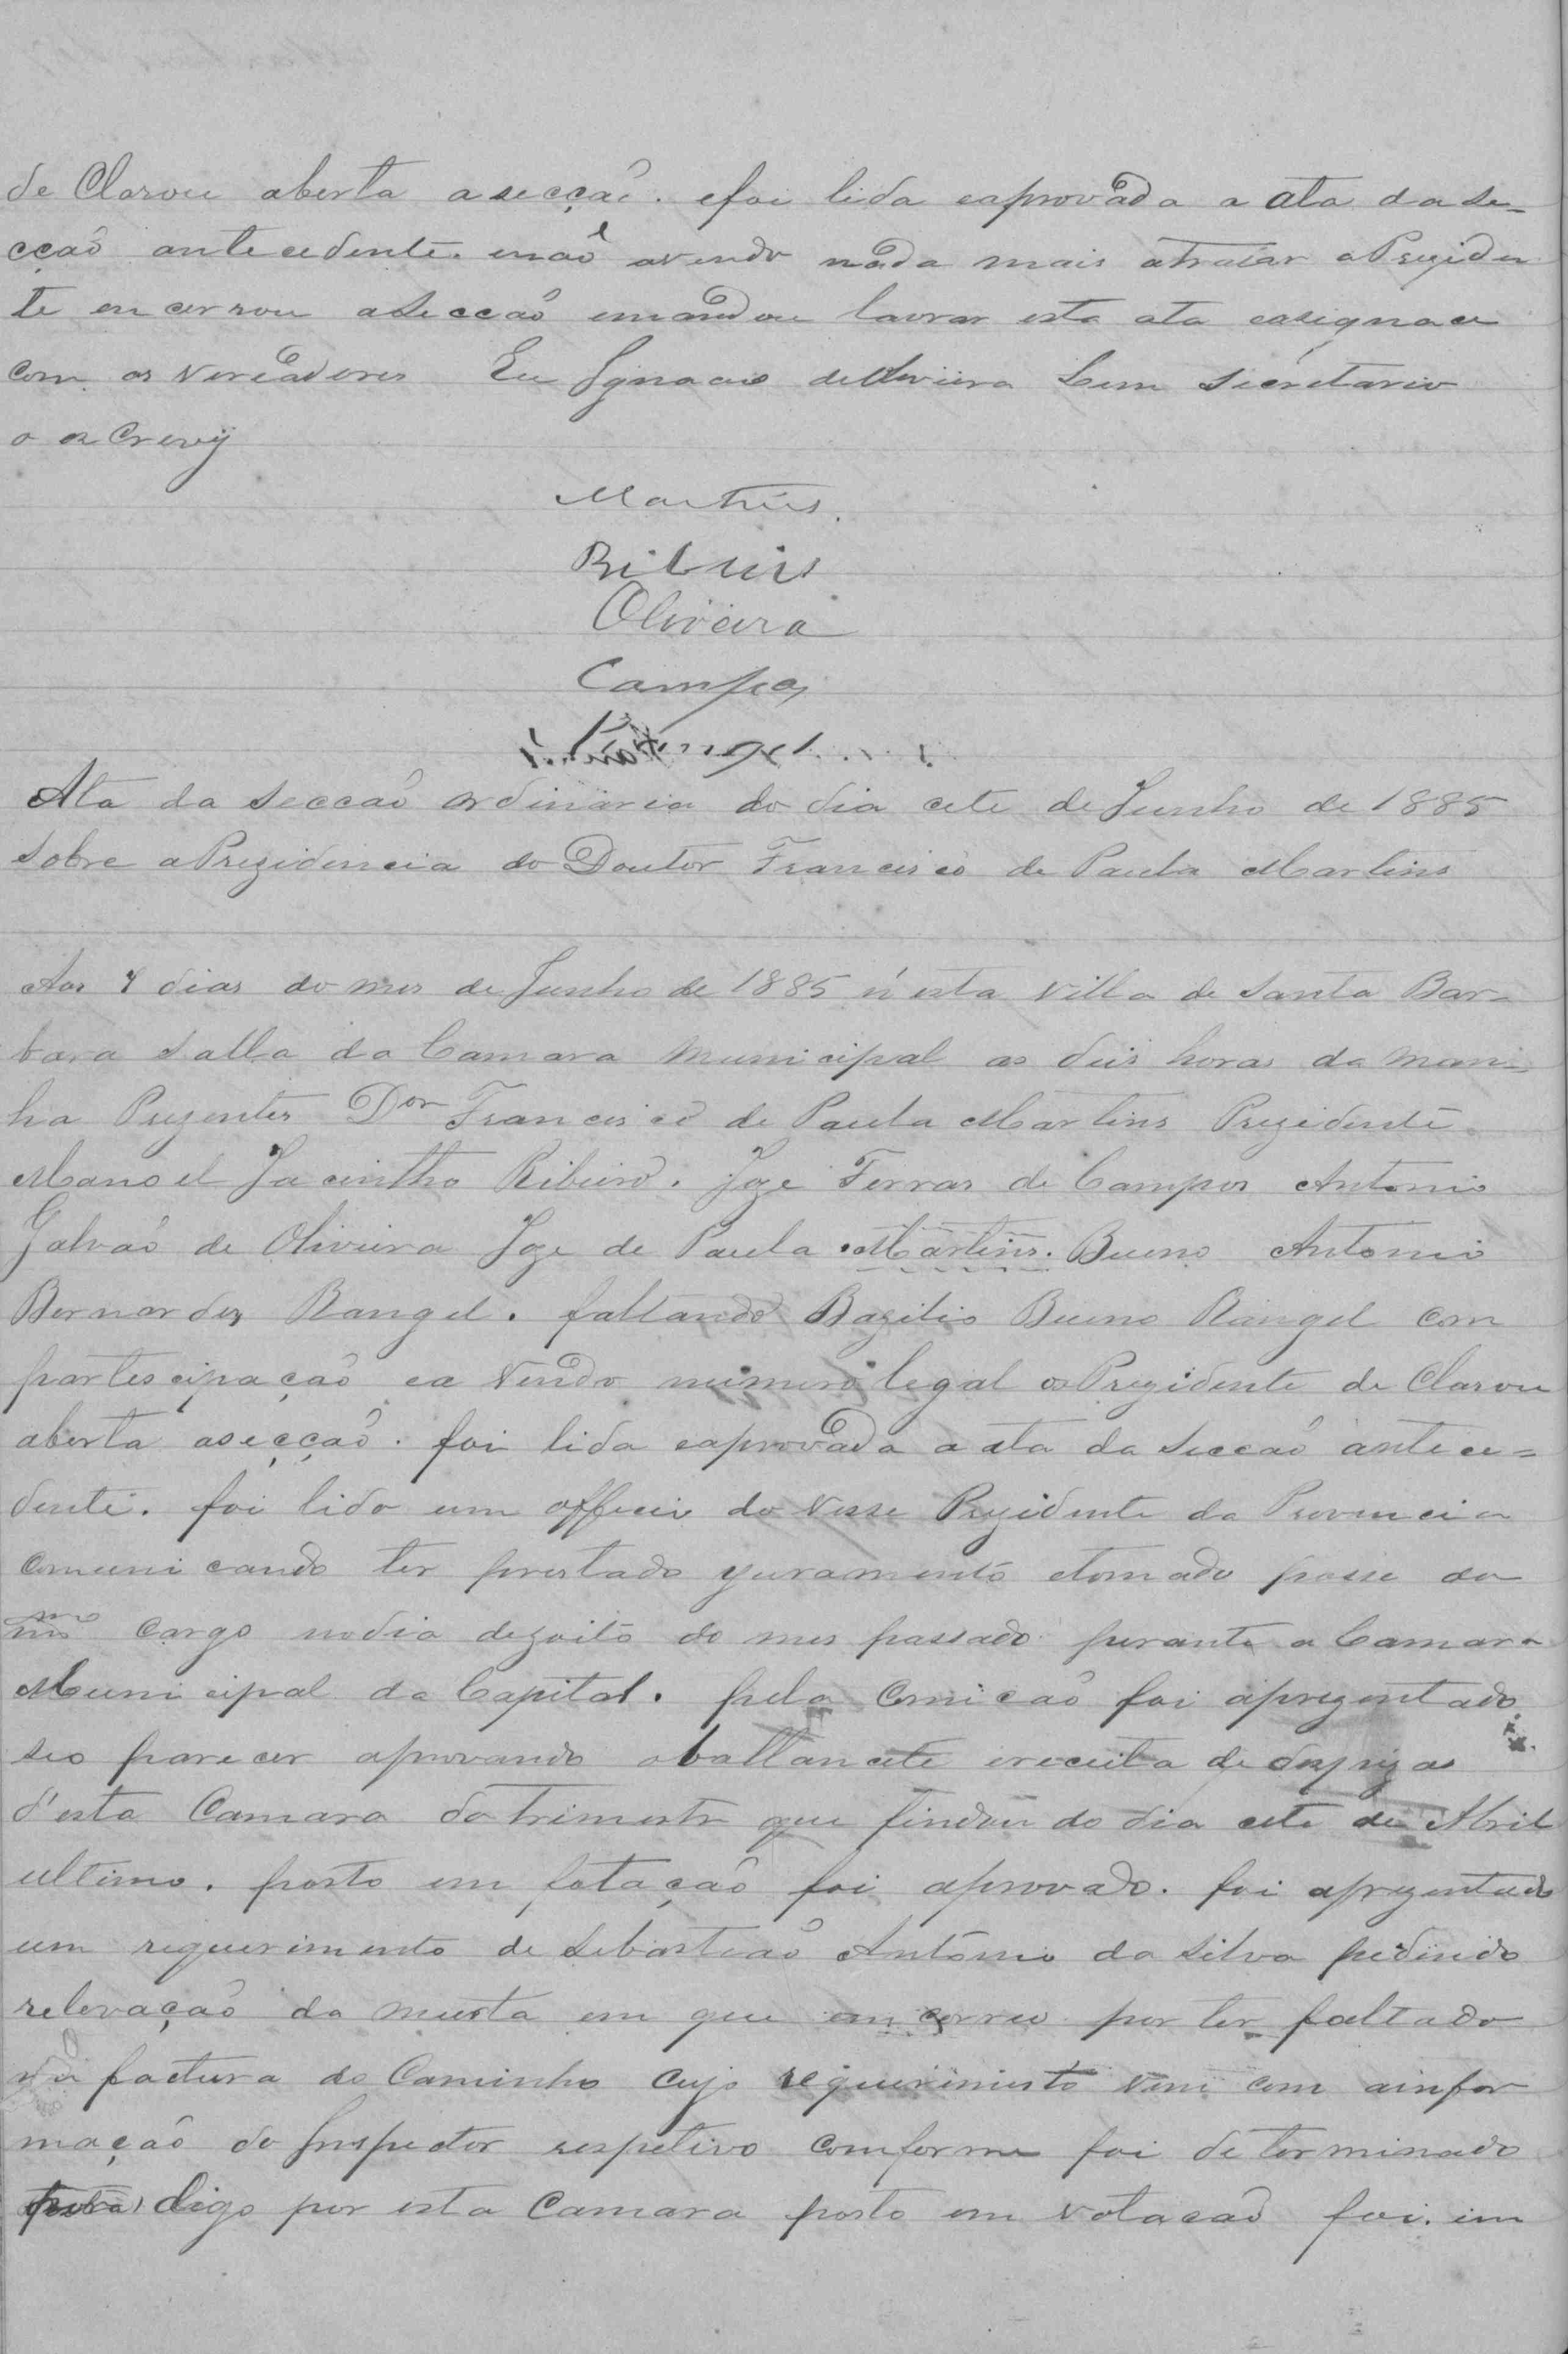 de Clarou aberta a secção. efoi lida eaprovada a ata da se-
cção antecedente. enaõ avendo nada mais atratar o Preziden
te encerrou a Secção emandou lavrar esta ata easignace
com os Vereadores Eu Ignacio de Oliveira Leem Secretario
o escrevij
Martins.
Ribeiro
Oliveira
Campos
Rangel
Ata da Secção ordinaria do dia cete de Junho de 1885
Sobre a Prezidencia do Doutor Francisco de Paula Martins
Aos 7 dias do mes de Junho de 1885 n'esta Villa de Santa Bar-
bara Salla da Camara Municipal as deis horas da man-
ha Prezentes Dor Francisco de Paula Martins Prezidente.
Manoel Jacintho Ribeiro. Joze Ferras de Campos Antonio
Galvaõ de Oliveira Joze de Paula Martins. Bueno Antonio
Bernardes Rangel. faltando Bazilio Bueno Rangel com
partescipação ea Vendo numero legal o Prezidente de Clarou
aberta asecção. foi lida eaprovada a ata da Secçaõ antece=
dente. foi lido um officio do Visse Prezidente da Provincia
Comunicando ter prestado yuramento etomado posse do
mmo Cargo nodia dezoito do mes passado perante a Camara
Municipal da Capital. pela Comicaõ foi aprezentado
seo parecer aprovando oballancete ereceita de despezas
d'esta Camara do trimestre que findou do dia cete de Abril
ultimo. posto em fotação foi aprovado. foi aprezentado
um requerimento de Sebastiaõ Antonio da Silva pedindo
relevação da multa em que encorreo por ter faltado
na factura do Caminho cujo requerimento veni com ainfor
mação do Inspector respetivo Comforme foi determinado
digo por esta Camara posto em Votacaõ foi. in